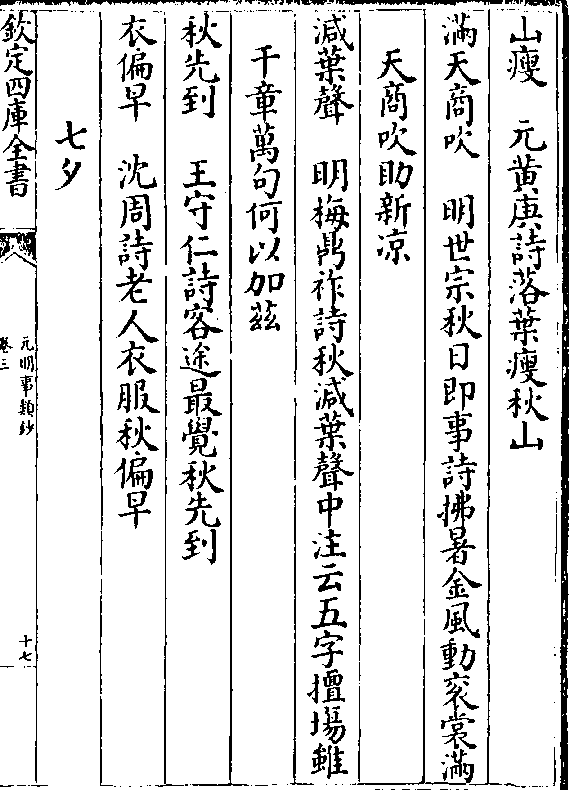 山瘦　元黄庚詩落葉瘦秋山
滿天商吹　明世宗秋日即事詩拂暑金風動衮裳滿
天商吹助新凉
減葉聲　明梅鼎祚詩秋減葉聲中注云五字擅塲雖
千章萬句何以加茲
秋先到　王守仁詩客途最覺秋先到
衣偏早　沈周詩老人衣服秋偏早
七夕
欽定四庫全書
元明事類鈔
卷三
十七